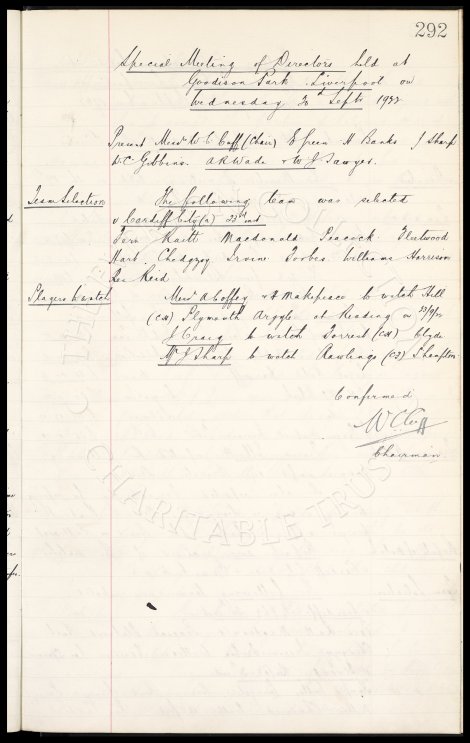 292
Special Meeting of Directors held at
Goodison Park Liverpool on
Wednesday 20 Septr 1922
Present Messrs W C Cuff (Chair) E Green H Banks J Sharp
W.C. Gibbins. A R Wade & W J Sawyer.
Team Selection The following team was selected
v Cardiff City (h) 23rd inst
Fern Raitt Macdonald Peacock Fleetwood
Hart Chedgzoy Irvine Forbes Williams Harrison
Res Reid
Players to watch Messrs A Coffey & H Makepeace to watch Hill
(CH) Plymouth Argyle at Reading on 23/9/22
J Craig to watch Forrest (CH) Clyde
Mr J Sharp to watch Rawlings S'hampton
Confirmed
W C Cuff
Chairman
CHARITABLE TRUST